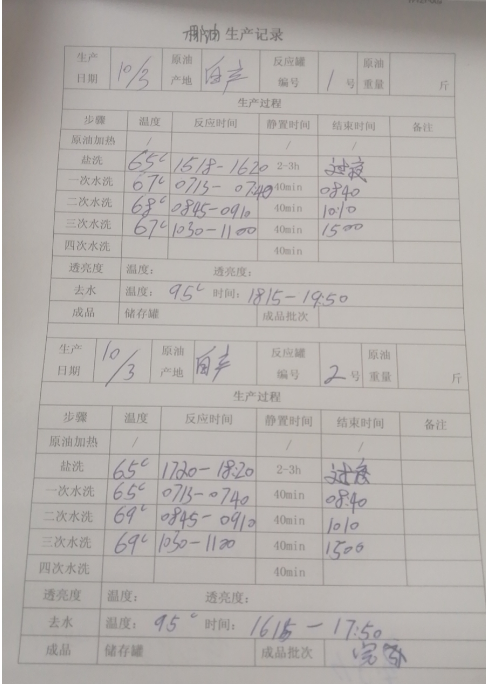 生产记录
生产日期 10/3 原油产地 自产 反应罐编号 1号 原油重量 斤
生产过程
步骤 温度 反应时间 静置时间 结束时间 备注
原油加热 / / /
盐洗 65℃ 1518-1620 2-3h 过夜
一次水洗 67℃ 0713-0740 40min 0840
二次水洗 68℃ 0845-0910 40min 10:10
三次水洗 67℃ 1030-1100 40min 1500
四次水洗 40min
透亮度 温度: 透亮度:
去水 温度: 95℃ 时间: 1815-19:50
成品 储存罐 成品批次
生产日期 10/3 原油产地 自产 反应罐编号 2号 原油重量 斤
生产过程
步骤 温度 反应时间 静置时间 结束时间 备注
原油加热 / / /
盐洗 65℃ 1720-18:20 2-3h 过夜
一次水洗 65℃ 0713-0740 40min 08:40
二次水洗 69℃ 0845-0910 40min 1010
三次水洗 69℃ 1030-1100 40min 1500
四次水洗 40min
透亮度 温度: 透亮度:
去水 温度: 95° 时间: 1615-17:50
成品 储存罐 成品批次